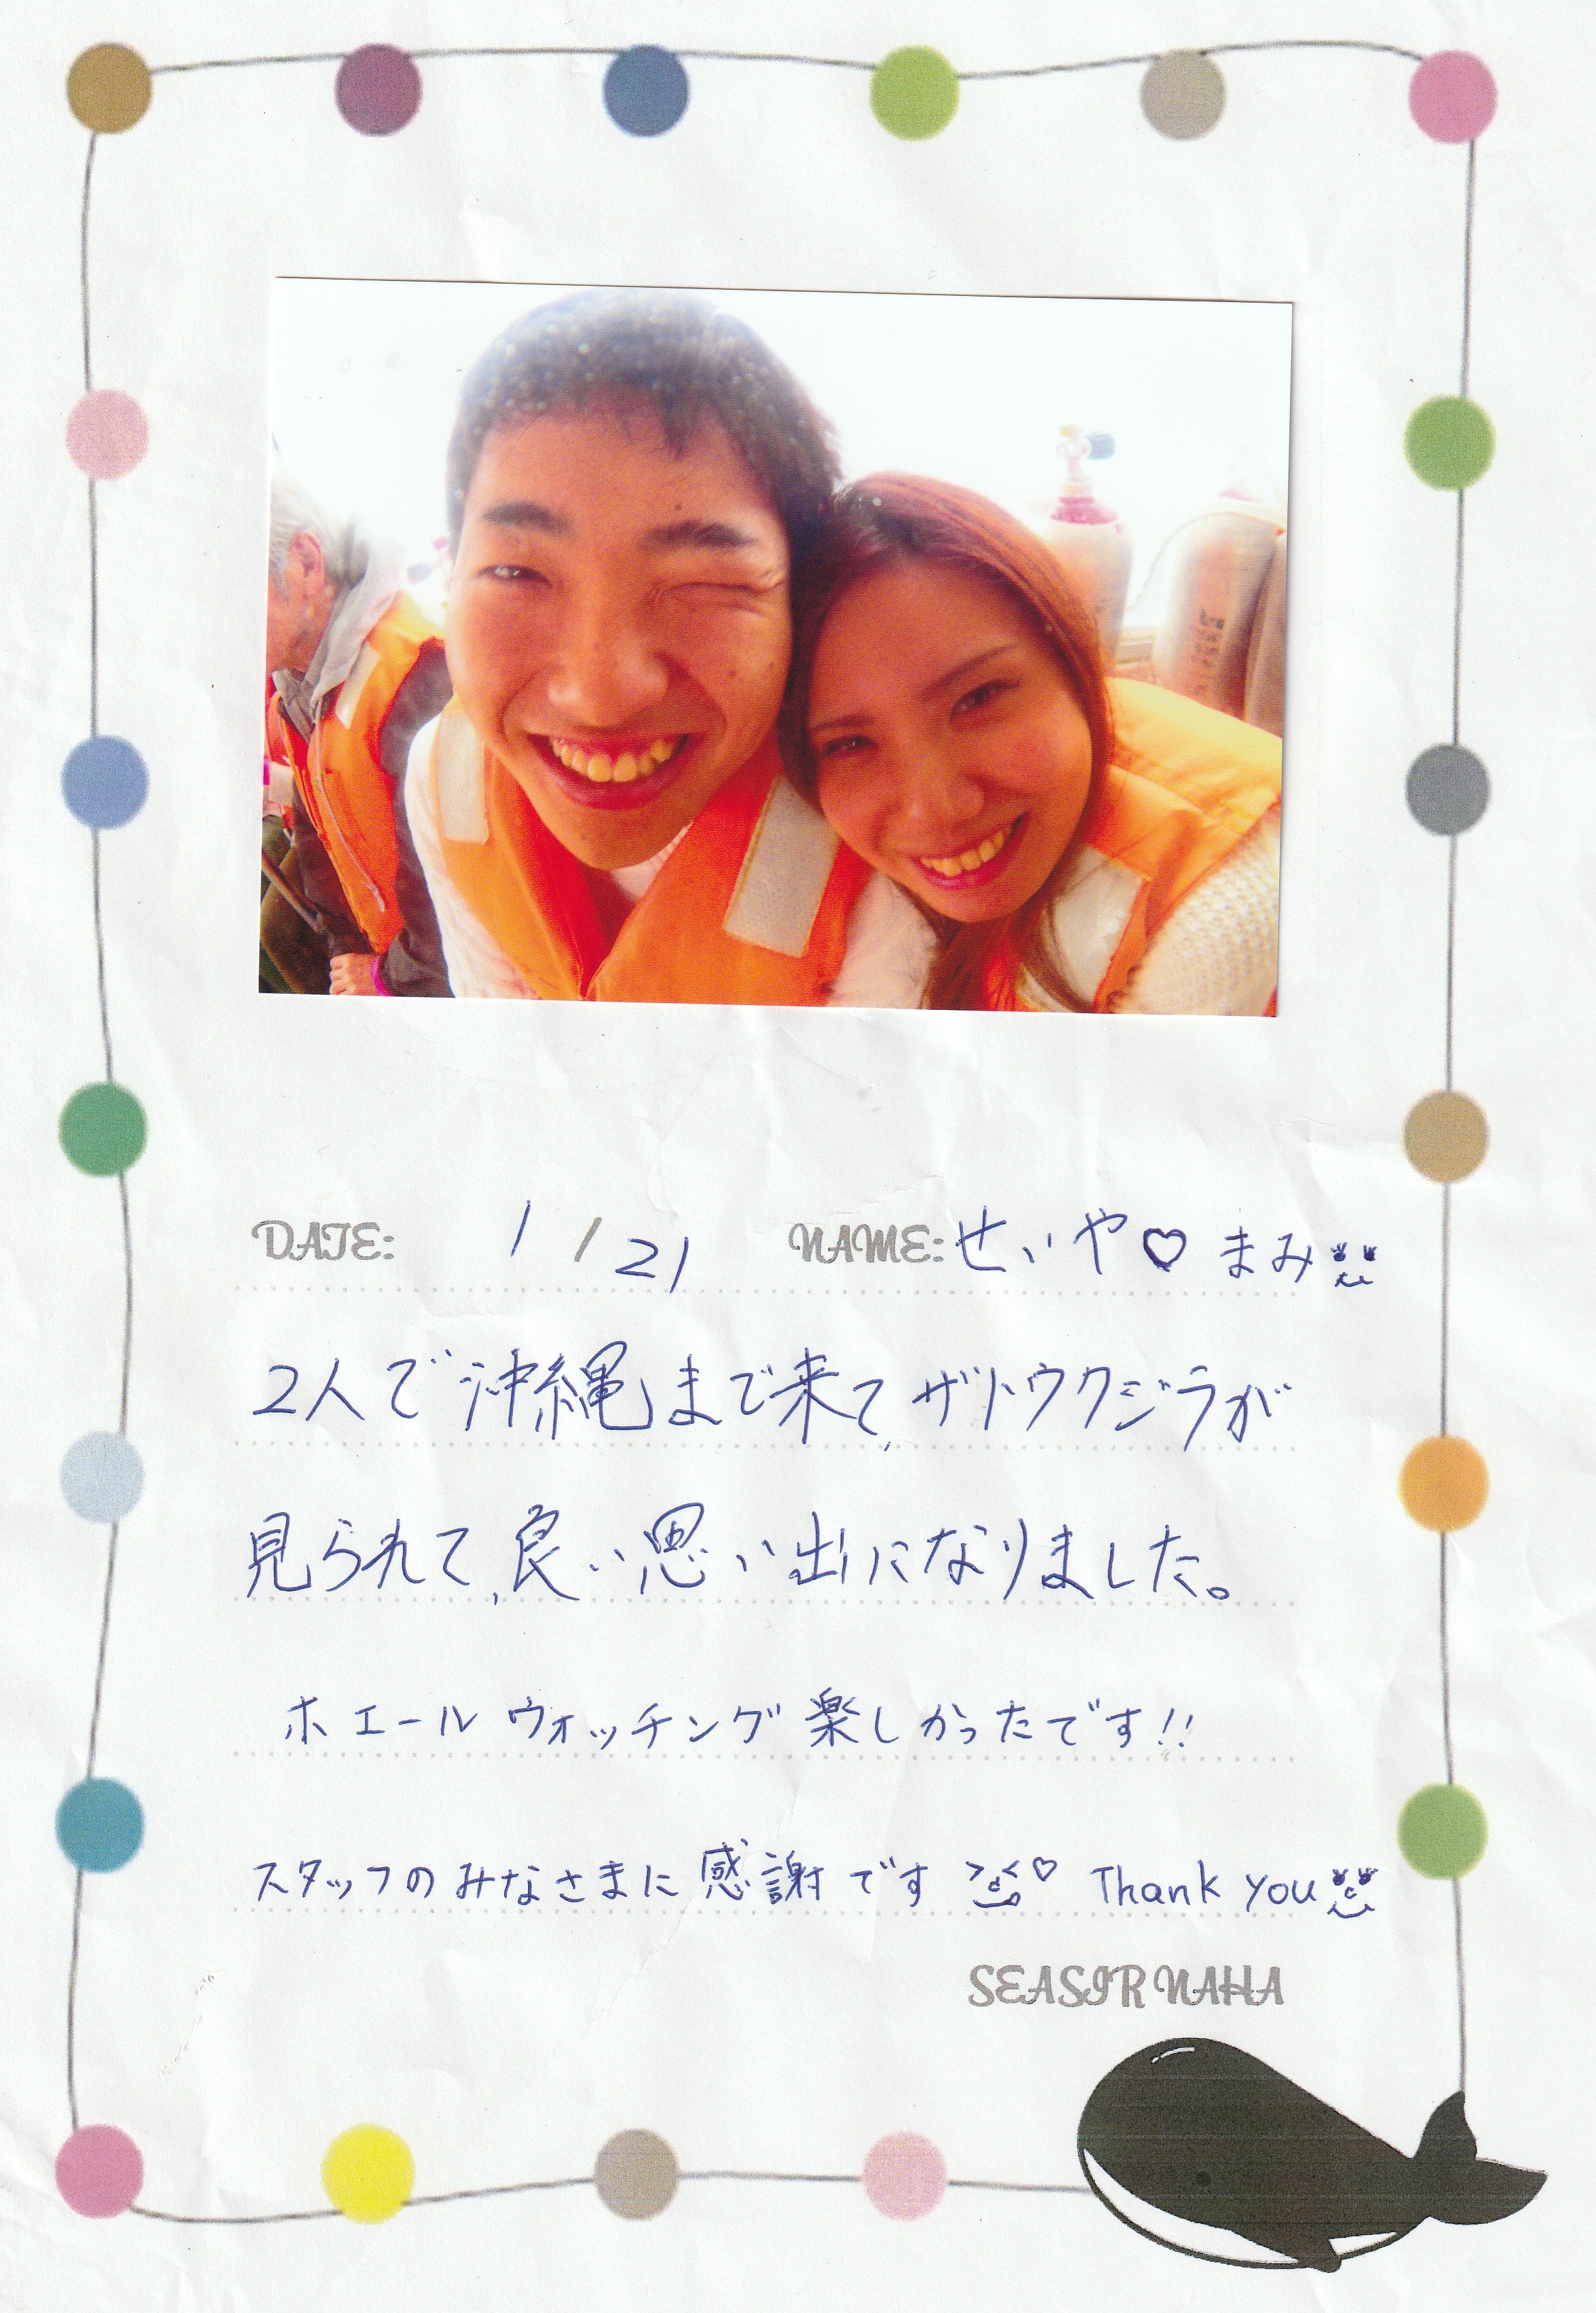 DATE: 1 / 21 NAME: せいや♡ まみ
2人で沖縄まで来て、ザトウクジラが
見られて、良い思い出になりました。
ホエールウォッチング楽しかったです!!
スタッフのみなさまに感謝です ♡ Thank you
SEASIR NAHA